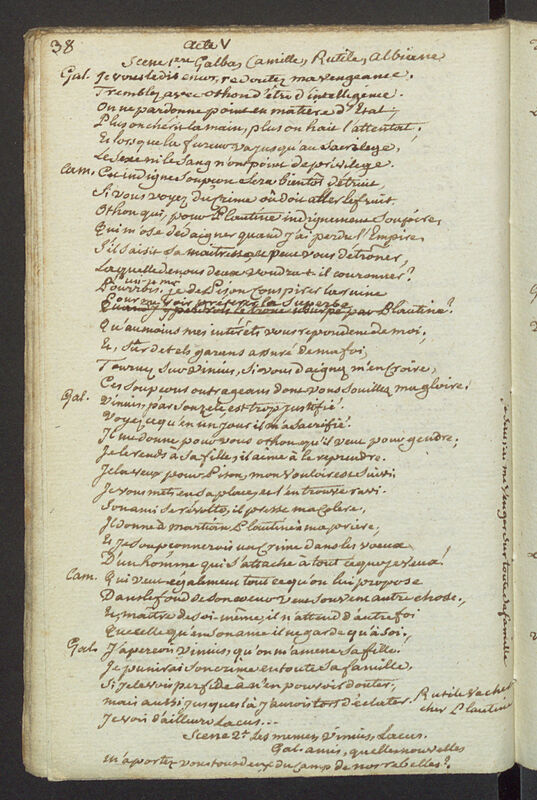 38
acte V
Scene 1ere Galba, Camille, Rutile, Albiane
Gal. Je vous le dit encor, redoutez ma vengeance.
Tremblez avec othon d'être d'intelligence.
On ne pardonne point en matière d'Etat;
Plus on chérit la main, plus on hait l'attentat;
Et lorsque la fureur va jusqu'au sacrilege,
Le sexe ni le sang n'ont point de privilege.
Cam. Cet indigne soupcon sera bientôt détruit
Si vous voyez du crime où doit aller le fruit.
Othon qui, pour Plautine indignement soupire,
Qui m'ose dedaigner quand j'ai perdu l'Empire,
S'il saisit sa maitresse et peut vous détrôner,
Laquelle de nous deux voudra-t-il couronner?
Pourrois-je de Pison conspirer la ruine
Pour voir préférer la superbe Plautine?
Qu'au moins mes intérêts vous repondent de moi,
Et, sûr de tels garens assuré de ma foi,
Tournez sur vinius, si vous daignez m'en croire,
Ces soupcons outrageans dont vous souillez ma gloire.
Gal. Vinius, par son zele est trop justifié.
Voyez ce qu'en un jour il m'a sacrifié.
Il me donne pour vous othon qu'il veut pour gendre;
Je le rends à sa fille, il aime à le reprendre.
Je la veux pour Pison, mon vouloir est suivi;
Je vous mets en sa place, et l'en trouve ravi.
Son ami se révolte, il presse ma colere,
Il donne à martian Plautine à ma priere;
Et je soupconnerois un crime dans les voeux
D'un homme qui s'attache à tout ce que je veux!
Cam. Qui veut également tout ce qu'on lui propose
Dans le fond de son coeur veut souvent autre chose.,
Et, maître de soi-même, il n'attend d'autre foi
Que celle qu'en son ame il ne garde qu'à soi.
Gal. J'aperçois vinius, qu'on m'amene sa fille.
Je punirai son crime en toute sa famille,
Si je le vois perfide à n'en pouvoir douter,
mais aussi jusques là j'aurois tort d'éclater. Rutile va chercher Plautine
Je vois d'ailleurs Lacus...
Scene 2e. Les memes, vinius, Lacus.
Gal. amis, quelles nouvelles
m'aportez vous tous deux du camp de nos rebelles?
me venger sur toute sa famille